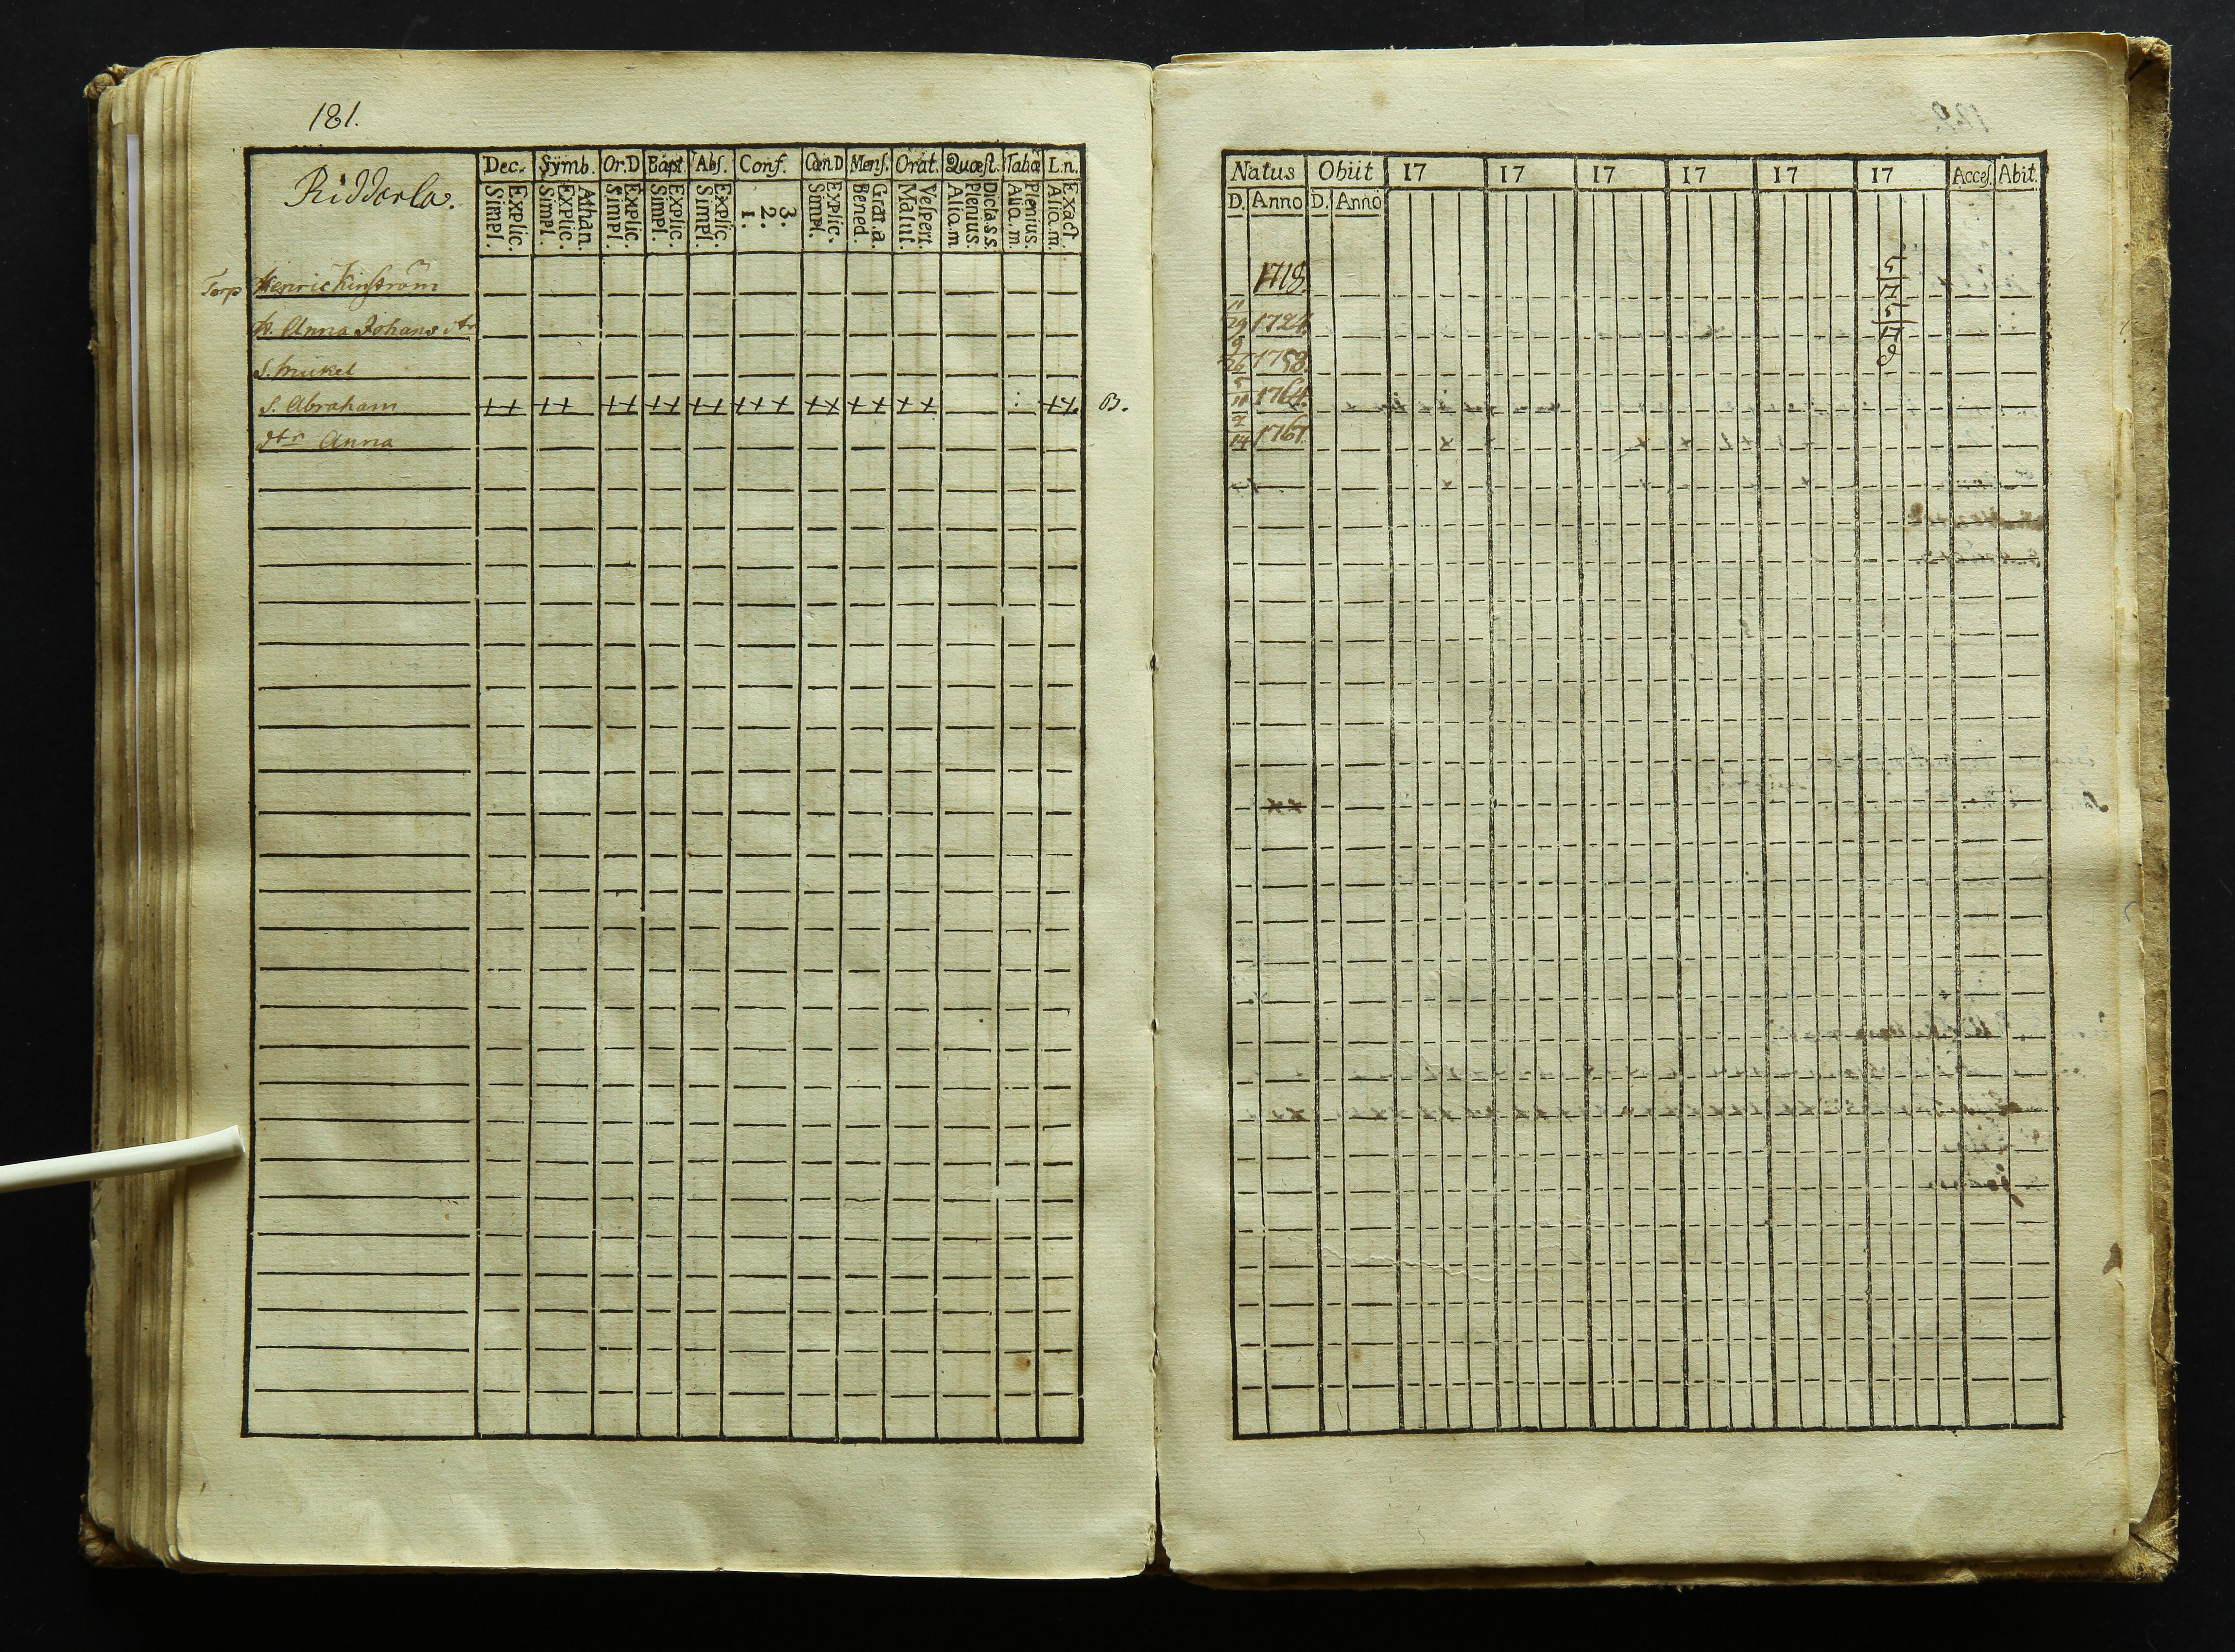 181.
Riddarla.
Dec. Symb. Or.D Bapt. Abs. Conf. Cœn D Mens. Orat. Quæst. Tabæ L.n.
Simpl. Explic. Simpl. Explic. Athan. Simpl. Explic. Simpl. Explic. Simpl. Explic. 1. 2. 3. Simpl. Explic. Bened. Grat.a. Matut. Vespert. Aliq.m. Plenius. Dicta.s s. Aliq.m. Plenius. Aliq.m. Exact.
Torp Henric
H. Anna Johans dtr
S. Mickel
S. Abraham ++ ++ ++ ++ ++ +++ ++ ++ ++ ++. B.
dtr Anna
Natus Obiit 17 17 17 17 17 17 Acces. Abit.
D. Anno D. Anno
1718.
11/29 1724.
9/26 1758.
5/11 1764.
2/14 1767.